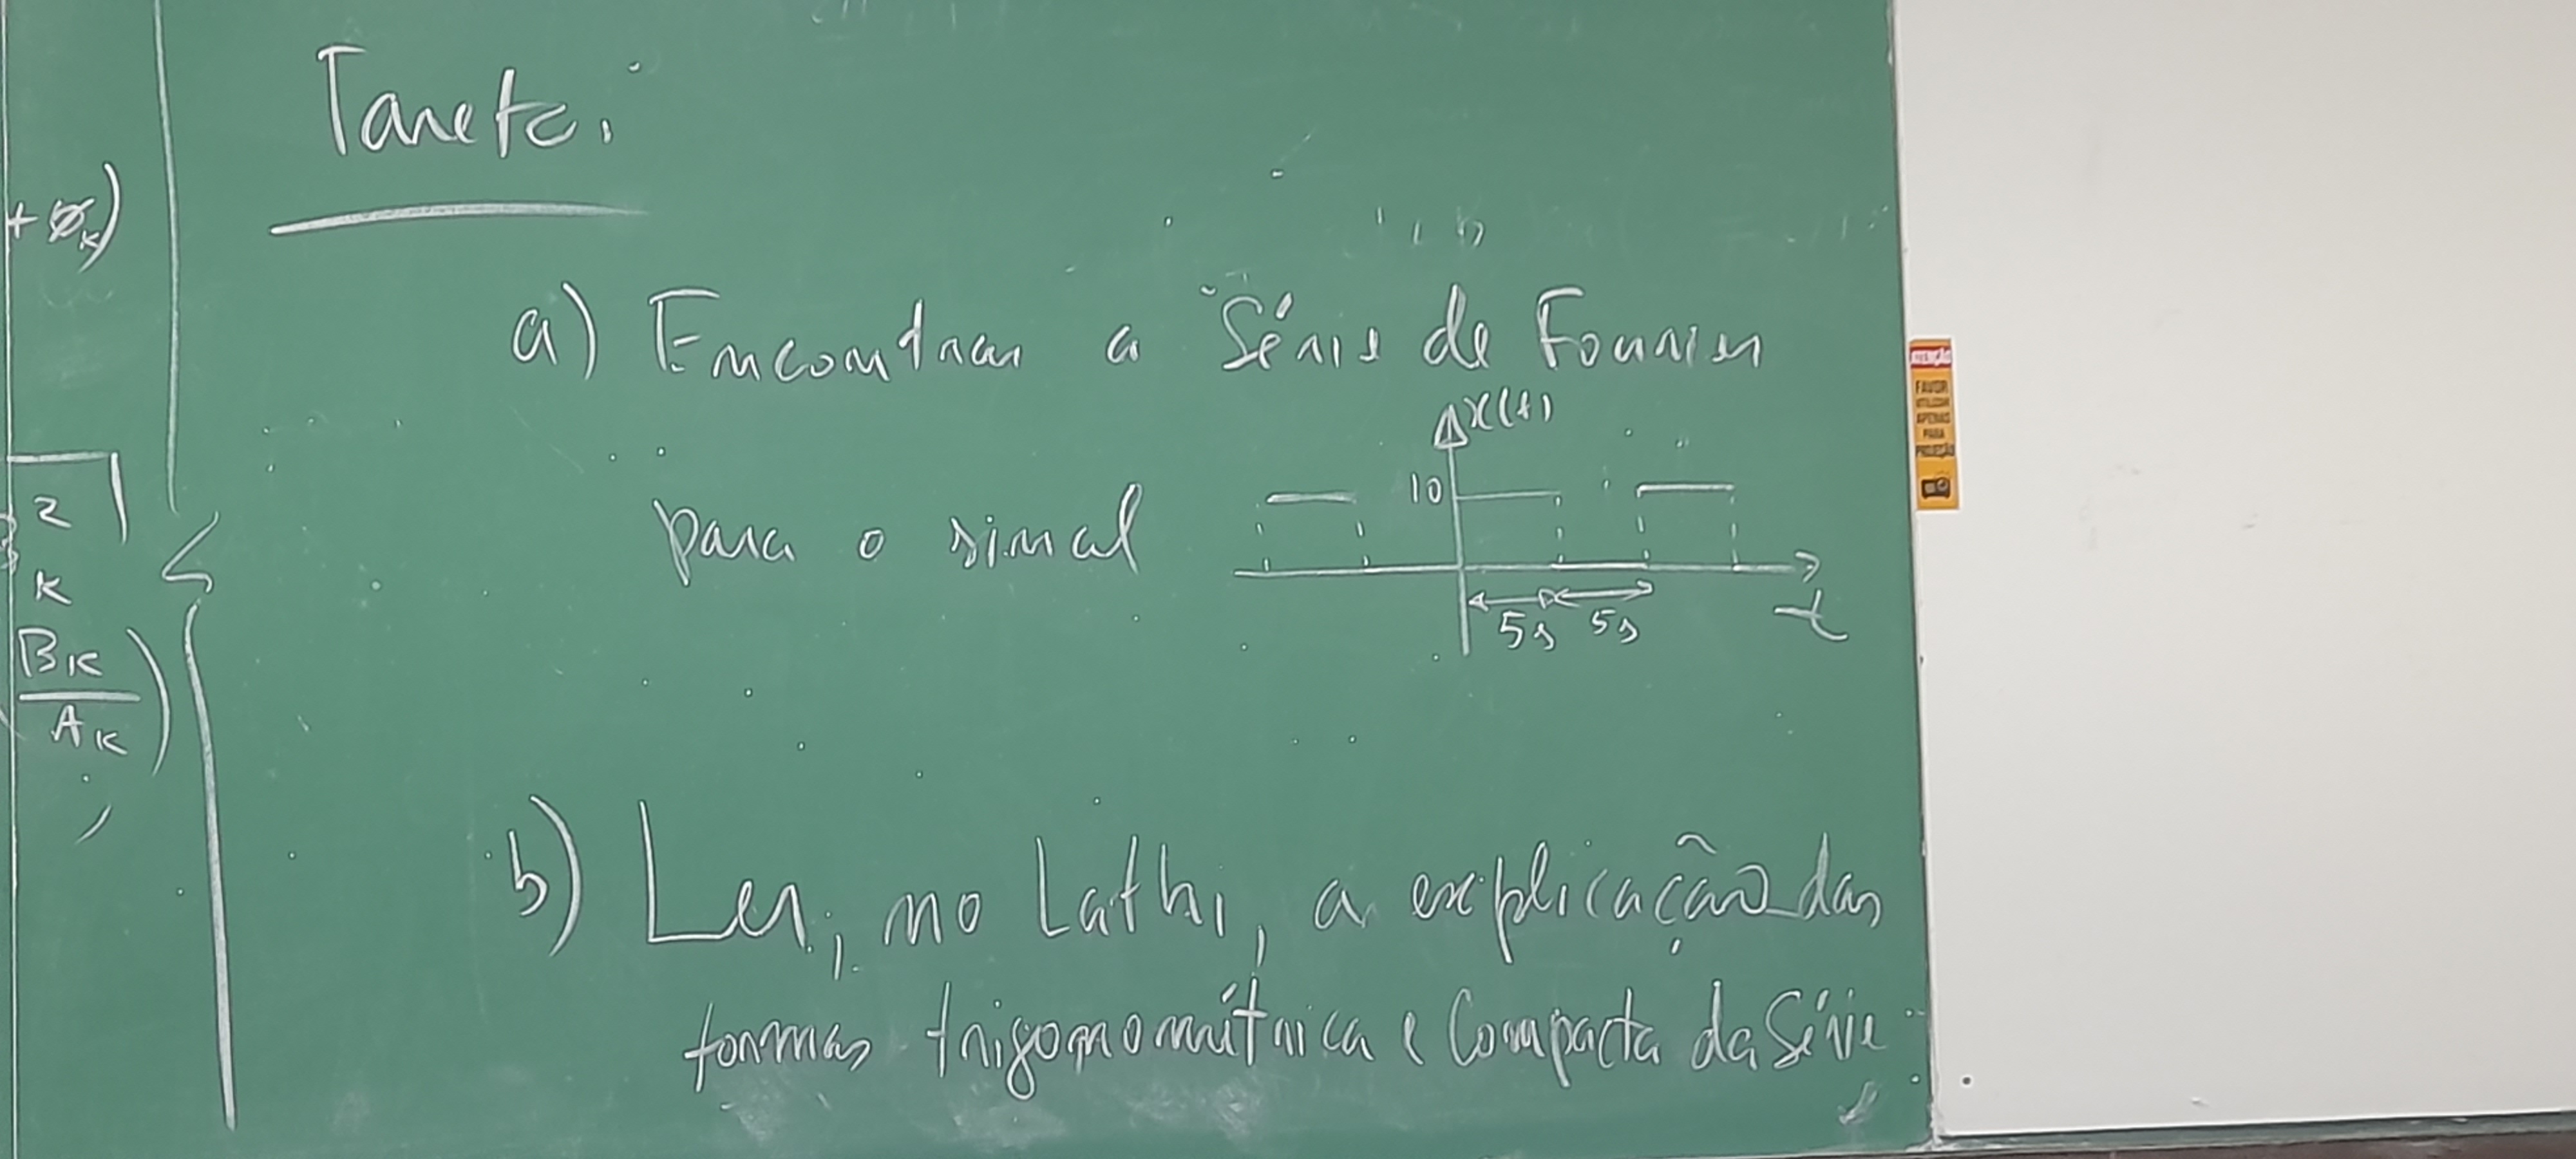 Tarefa:
+ Øₖ)
a) Encontrar a Série de Fourier
x(t)
para o sinal
10
5s 5s
t
2
K
BK
AK
b) Ler, no Lathi, a explicação das
formas trigonométrica e Compacta da Série
FAVOR
UTILIZAR
APENAS
PARA
PROJEÇÃO